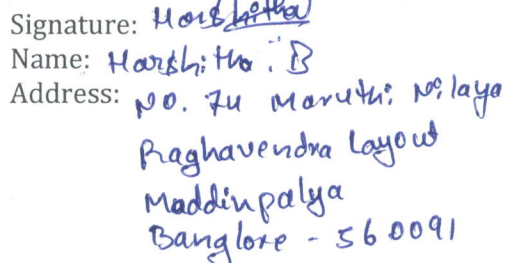 Signature: Harshitha
Name: Harshitha . B
Address: NO. 74 Maruthi Nilaya
Raghavendra Layout
Maddinpalya
Banglore - 560091